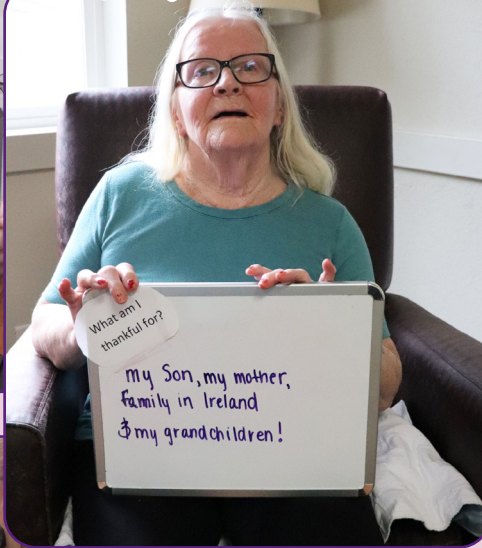 What am I
thankful for?
my Son, my mother,
family in Ireland
& my grandchildren!